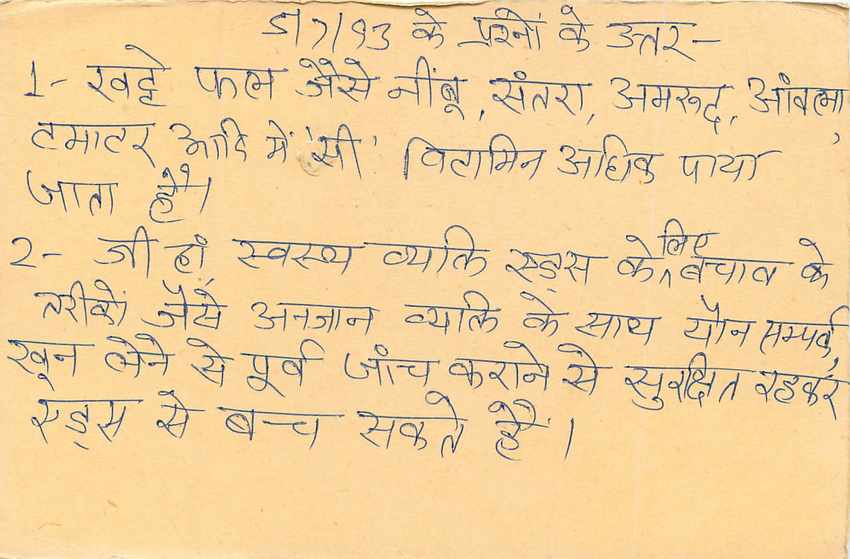 5/7/93 के प्रश्नों के उत्तर-
1- खट्टे फल जैसे नींबू, संतरा, अमरूद, आंवला,
टमाटर आदि में 'सी' विटामिन अधिक पाया
जाता है।
2- जी हां, स्वस्थ व्यक्ति एड्स के लिए बचाव के
तरीकों जैसे अनजान व्यक्ति के साथ यौन सम्पर्क,
खून लेने से पूर्व जांच कराने से सुरक्षित रहकर
एड्स से बच सकते हैं।